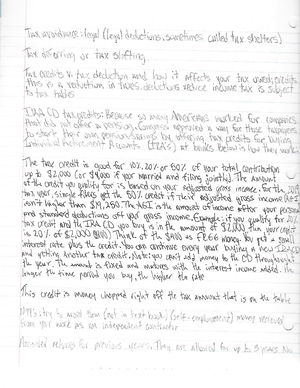 Tax avoidance: legal (legal deductions, sometimes called tax shelters)
Tax deferring or tax shifting.
Tax credits v. tax deduction and how it affects your tax owed; credits
This is a reduction in taxes. deductions reduce income tax is subject
to tax tables
IRA CD tax credits: Because so many Americans worked for companies
that did not offer a pension, Congress approved a way for those taxpayers
to start their own pension/savings by offering tax credits for buying
Individual Retirement Accounts (IRA's) at banks
The tax credit is good for 10%, 20% or 50% of your total contribution
up to $2,000 (or $4000 if your married and filing jointly). The amount
of the credit you qualify for is based on your adjusted gross income. for the
tax year, single filers get the 50% credit if their adjusted gross income (AGI)
isn't higher than The AGI is the amount of income after your personal
and standard deductions off your gross income. Example: if you qualify for
tax credit and the IRA CD you buy is in the amount of $2,000, then your credit
is 20% of $2,000 Think of the $400 as FREE money. You get a small
interest rate plus the credit. You can continue every year buying a new IRA
and getting another tax credit. Note: you can't add money to the CD throughout
the year. The amount is fixed and matures with the interest income added. The
longer the time period you buy, the higher the rate
This credit is money chopped right off the tax amount that is on the table
try to avoid them (not in text book) (self-employment) money received
from your work as an independent contractor
Amended returns for previous years. They are allowed for up to 3 years. No